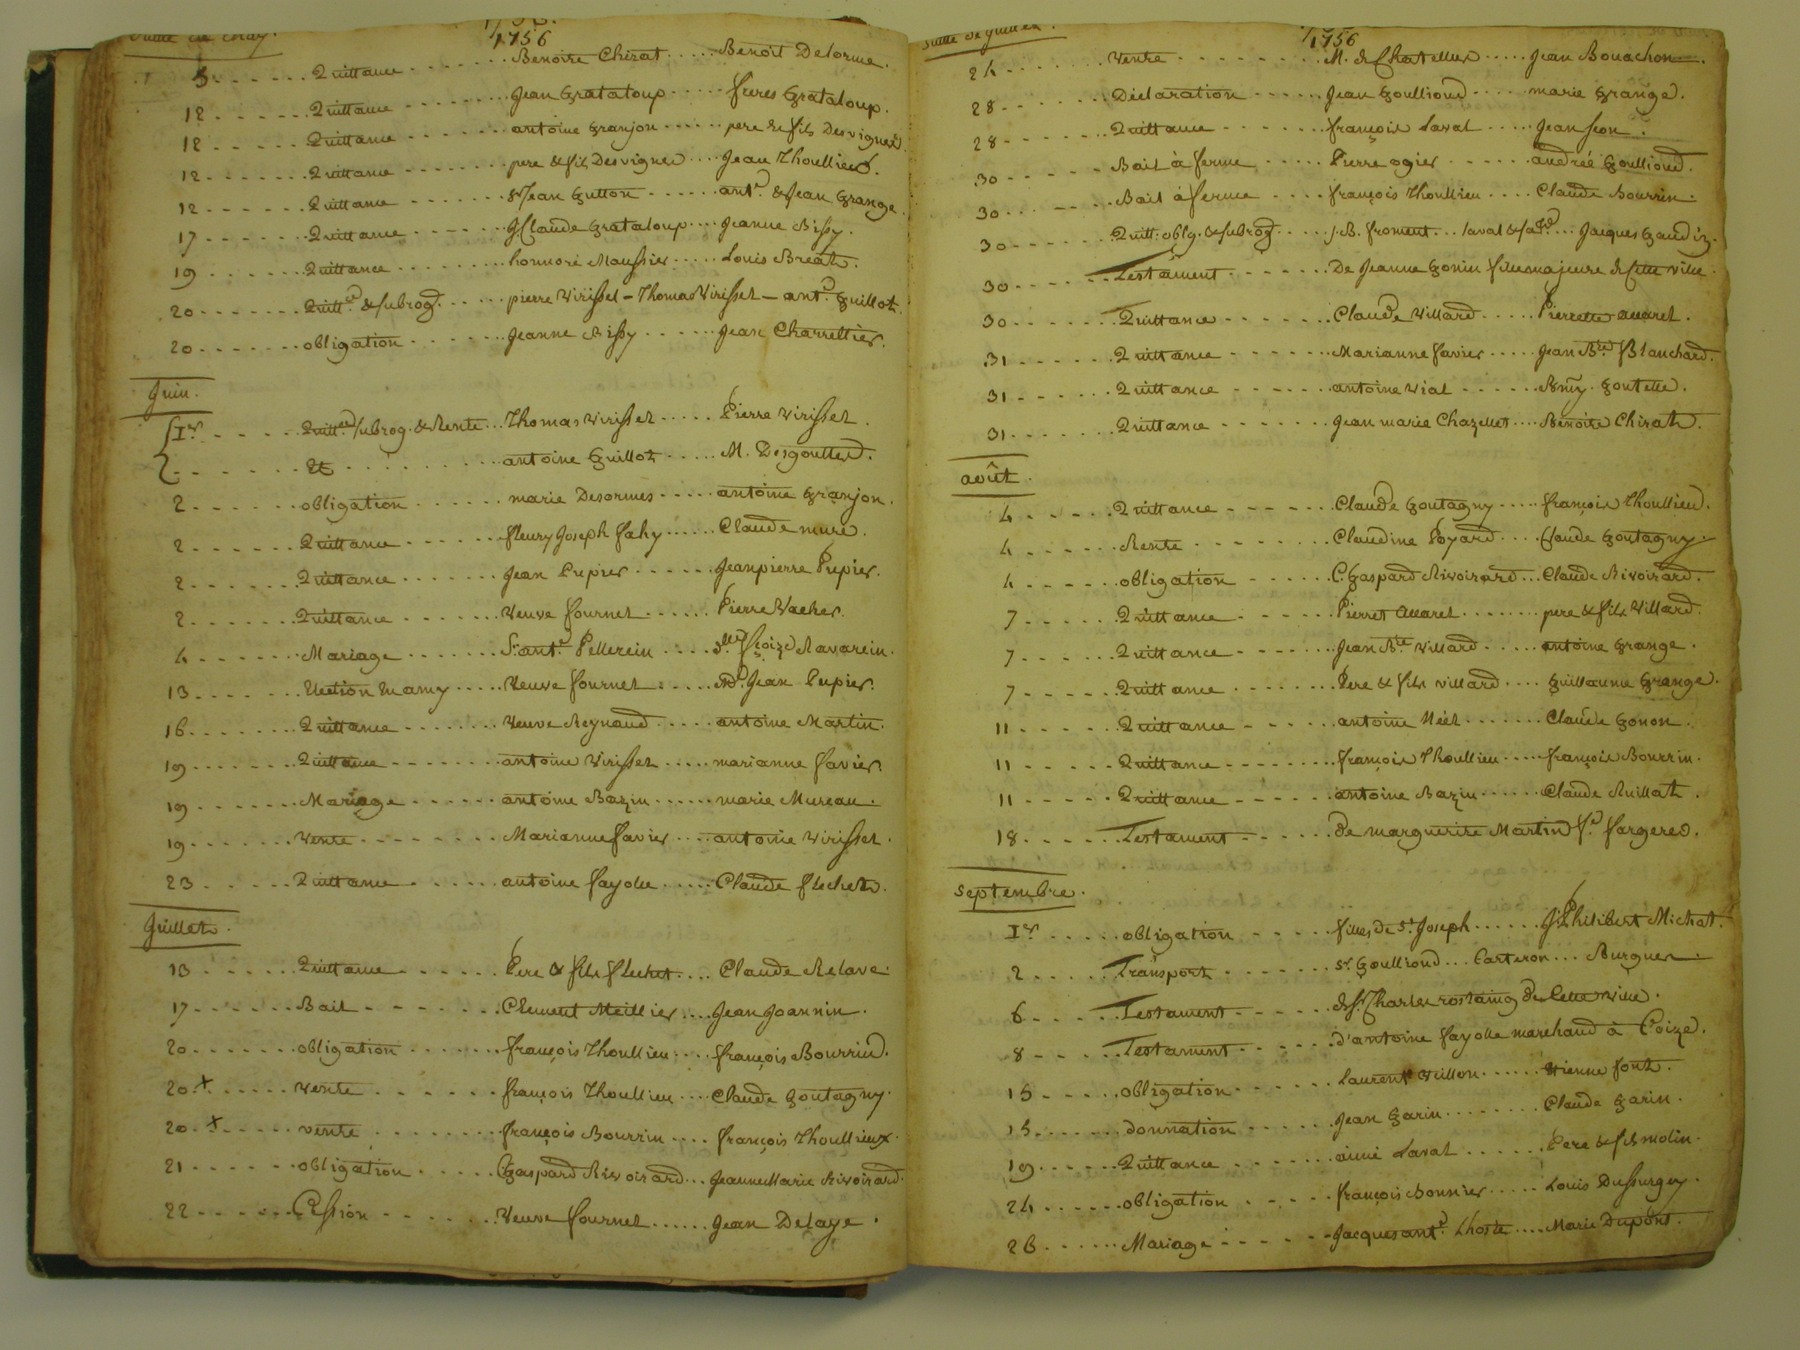 Suite de May.
1756
5 Quittance Benoite Chirat Benoit Delorme.
12 Quittance Jean Grataloup freres Grataloup.
12 Quittance antoine Granjon pere & fils Desvignes
12 Quittance pere & fils Desvignes Jean Thoullieu.
12 Quittance Sr Jean Gutton ant.e & Jean Grange.
17 Quittance J Claude Grataloup Jeanne Bissy.
19 Quittance honnoré Maussier Louis Breat.
20 Quitt.ce & subrog. pierre Virisset - Thomas Virisset - ant.e Guillot.
20 obligation Jeanne Bissy Jean Charrettier.
Juin.
Ier Quitt.ce subrog. & Rente Thomas Virisset Pierre Virisset.
Et antoine Guillot M. Desgouttes.
2 obligation marie Desormes antoine Granjon.
2 Quittance fleury Joseph fahy Claude mure.
2 Quittance Jean Pupier Jean pierre Pupier.
2 Quittance Veuve fournel Pierre Vacher.
4 Mariage Sr. ant.e Pellerein Dlle fçoize Ravarein.
13 Election en amy Veuve fournel Jean Pupier.
16 Quittance Veuve Reynaud antoine Martin.
19 Quittance antoine Virisset marianne favier.
19 Mariage antoine Bazin marie Mureau.
19 Vente Marianne favier antoine Virisset.
23 Quittance antoine fayolle Claude flechet.
Juillet.
13 Quittance Pere & fils flechet Claude Relave.
17 Bail Clement Meillier Jean Joannin.
20 obligation françois Thoullieu françois Bourrin.
20 x Vente françois Thoullieu Claude Goutagny.
20 x vente françois Bourrin françois Thoullieux.
21 obligation Gaspard Rivoirard Jeanne Marie Rivoirard.
22 Cession Veuve fournel Jean Delaye.
Suite de Juillet.
1756
24 Vente M. de Chatellus Jean Bouachon.
28 Déclaration Jean Goullioud marie Grange.
28 Quittance françois Laval Jean Jeon.
30 Bail à ferme Pierre ogier andrée Goullioud.
30 Bail à ferme françois Thoullieu Claude Bourrin.
30 Quitt: oblg. & subrog. J. B. froment Laval Jacques Gaudiz.
30 Testament De Jeanne Gonin fille majeure de Cette ville.
30 Quittance Claude Villard Pierrette allaret.
31 Quittance Marianne favier Jean B.te Blanchard.
31 Quittance antoine Vial Bmy. Goutelle.
31 Quittance Jean marie Chazelles Benoite Chirat.
août.
4 Quittance Claude Goutagny françois Thoullieu.
4 Rente Claudine Poyard Claude Goutagny.
4 obligation C. Gaspard Rivoirard Claude Rivoirard.
7 Quittance Pierret allaret pere & fils Villard.
7 Quittance Jean B.te Villard antoine Grange.
7 Quittance Pere & fils villard Guillaume Grange.
11 Quittance antoine Néel Claude Gonon.
11 Quittance françois Thoullieu françois Bourrin.
11 Quittance antoine Bazin Claude Ruillat.
18 Testament de marguerite Martin f.e fargeres.
Septembre.
Ier obligation filles de St. Joseph J Philibert Michat.
2 Transport Sr. Goullioud Carteron Burgues.
6 Testament de Sr. Charles rostaing de Cette ville.
8 Testament d'antoine fayolle marchand à Coize.
15 obligation Laurent Vrillon etienne font.
15 donnation Jean Garin Claude Garin.
19 Quittance aimé Laval Pere & fils molin.
24 obligation françois Bonnier Louis Dussurgey.
26 Mariage Jacques ant.e Lhoste Marie Dupont.